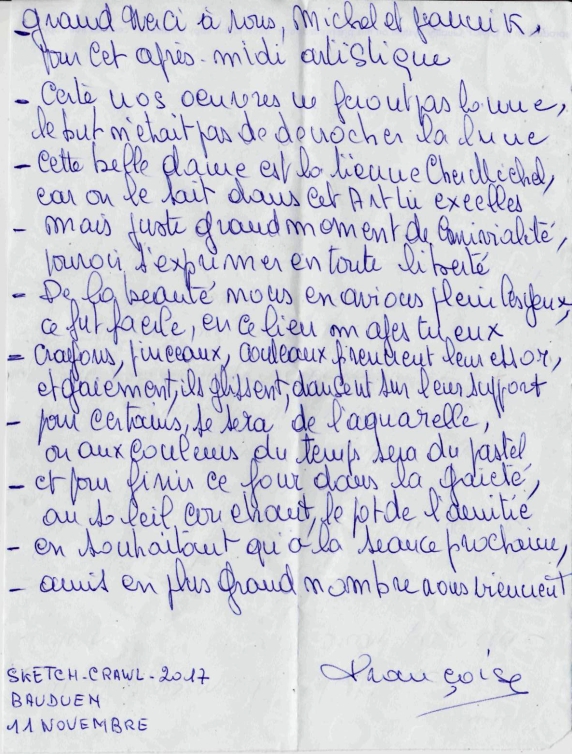 - grand Merci à vous, Michel et Francik,
pour cet après-midi artistique
- Certe nos oeuvres ne feront pas la une,
le but n'était pas de décrocher la lune
- Cette belle dame est la tienne Cher Michel,
car on le sait dans cet Art tu excelles
- mais juste grand moment de Convivialité,
pouvoir s'exprimer en toute liberté
- De la beauté nous en avions plein les yeux,
ce fut facile, en ce lieu majestueux
- Crayons, pinceaux, couteaux prennent leur essor,
et gaiement, ils glissent, dansent sur leur support
- pour certains, se sera de l'aquarelle,
ou aux couleurs du temps sera du pastel
- et pour finir ce jour dans la gaieté,
au soleil couchant, le pot de l'amitié
- en souhaitant qu'à la séance prochaine,
- amis en plus grand nombre nous viennent
Françoise
SKETCH-CRAWL-2017
BAUDUEN
11 NOVEMBRE